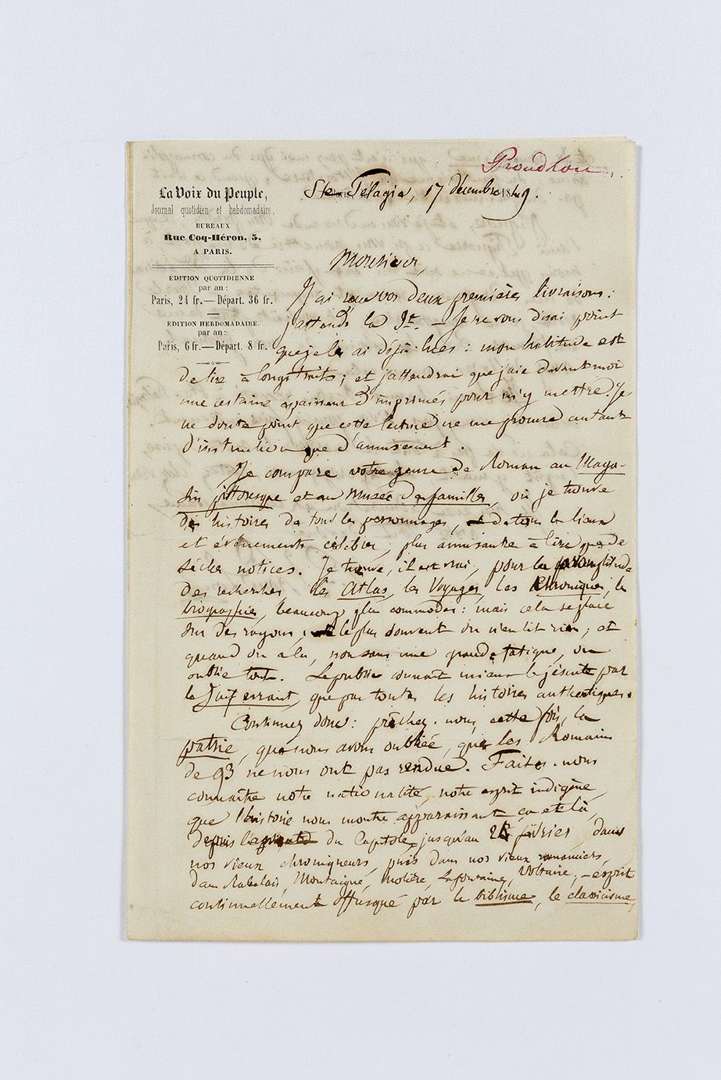 Proudhon
La Voix du Peuple,
Journal quotidien et hebdomadaire.
BUREAUX
Rue Coq-Héron, 5.
A PARIS.
ÉDITION QUOTIDIENNE
par an:
Paris, 24 fr. — Départ. 36 fr.
ÉDITION HEBDOMADAIRE
par an:
Paris, 6 fr. — Départ. 8 fr.
Ste Pélagie, 17 décembre 1849.
Monsieur,
J'ai reçu vos deux premières livraisons:
j'attends la 3e. — Je ne vous dirai point
que je les ai déjà lues: mon habitude est
de lire à longs traits; et j'attendrai que j'aie devant moi
une certaine épaisseur d'imprimés pour m'y mettre. Je
ne doute point que cette lecture ne me procure autant
d'instruction que d'amusement.
Je compare votre genre de Roman au Maga-
sin pittoresque et au Musée des familles, où je trouve
des histoires de tous les personnages, de tous les lieux
et événements célèbres, plus amusantes à lire que de
sèches notices. Je trouve, il est vrai, pour la
des recherches, les Atlas, les Voyages, les Chroniques, les
biographies, beaucoup plus commodes: mais cela se place
sur des rayons, le plus souvent on n'en lit rien; et
quand on a lu, non sans une grande fatigue, on
oublie tout. Le public connaît mieux le jésuite par
le Juif errant, que par toutes les histoires authentiques.
Continuez donc: prêchez-nous cette fois la
patrie, que nous avons oubliée, que les Romains
de 93 ne nous ont pas rendue. Faites-nous
connaître notre nationalité, notre esprit indigène,
que l'histoire nous montre apparaissant çà et là
depuis du Capitole jusqu'au 24 février, dans
nos vieux chroniqueurs, puis dans nos vieux romanciers,
dans Rabelais, Montaigne, Molière, Lafontaine, Voltaire; — esprit
continuellement offusqué par le biblisme, le classicisme,